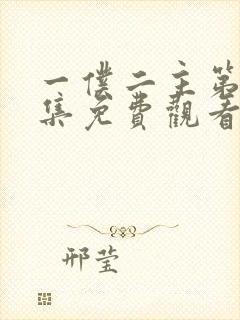 一僕二主第
集免費觀看
邢莹